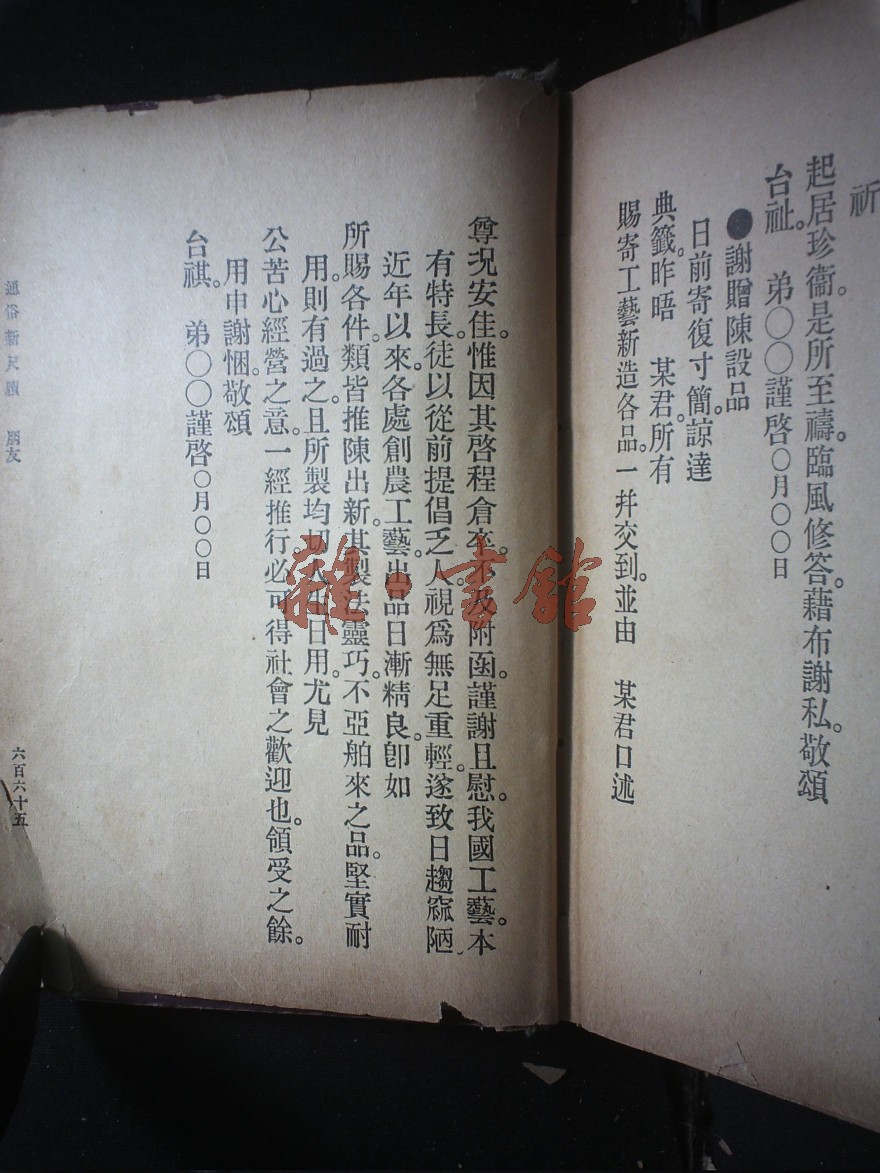 祈
起居珍衞。是所至禱。臨風修答。藉布謝私。敬頌
台祉。　弟〇〇謹啓〇月〇〇日
●謝贈陳設品
日前寄復寸簡。諒達
典籤。昨晤　某君。所有
賜寄工藝新造各品。一幷交到。並由　某君口述
尊況安佳。惟因其啓程倉卒。不及附函。謹謝且慰。我國工藝。本
有特長。徒以從前提倡乏人。視爲無足重輕。遂致日趨窳陋。
近年以來。各處創農工藝。出品日漸精良。卽如
所賜各件。類皆推陳出新。其製法靈巧。不亞舶來之品。堅實耐
用。則有過之。且所製均切人生日用。尤見
公苦心經營之意。一經推行。必可得社會之歡迎也。領受之餘。
用申謝悃。敬頌
台祺。　弟〇〇謹啓〇月〇〇日
通俗新尺牘　朋友
六百六十五
雜·書館